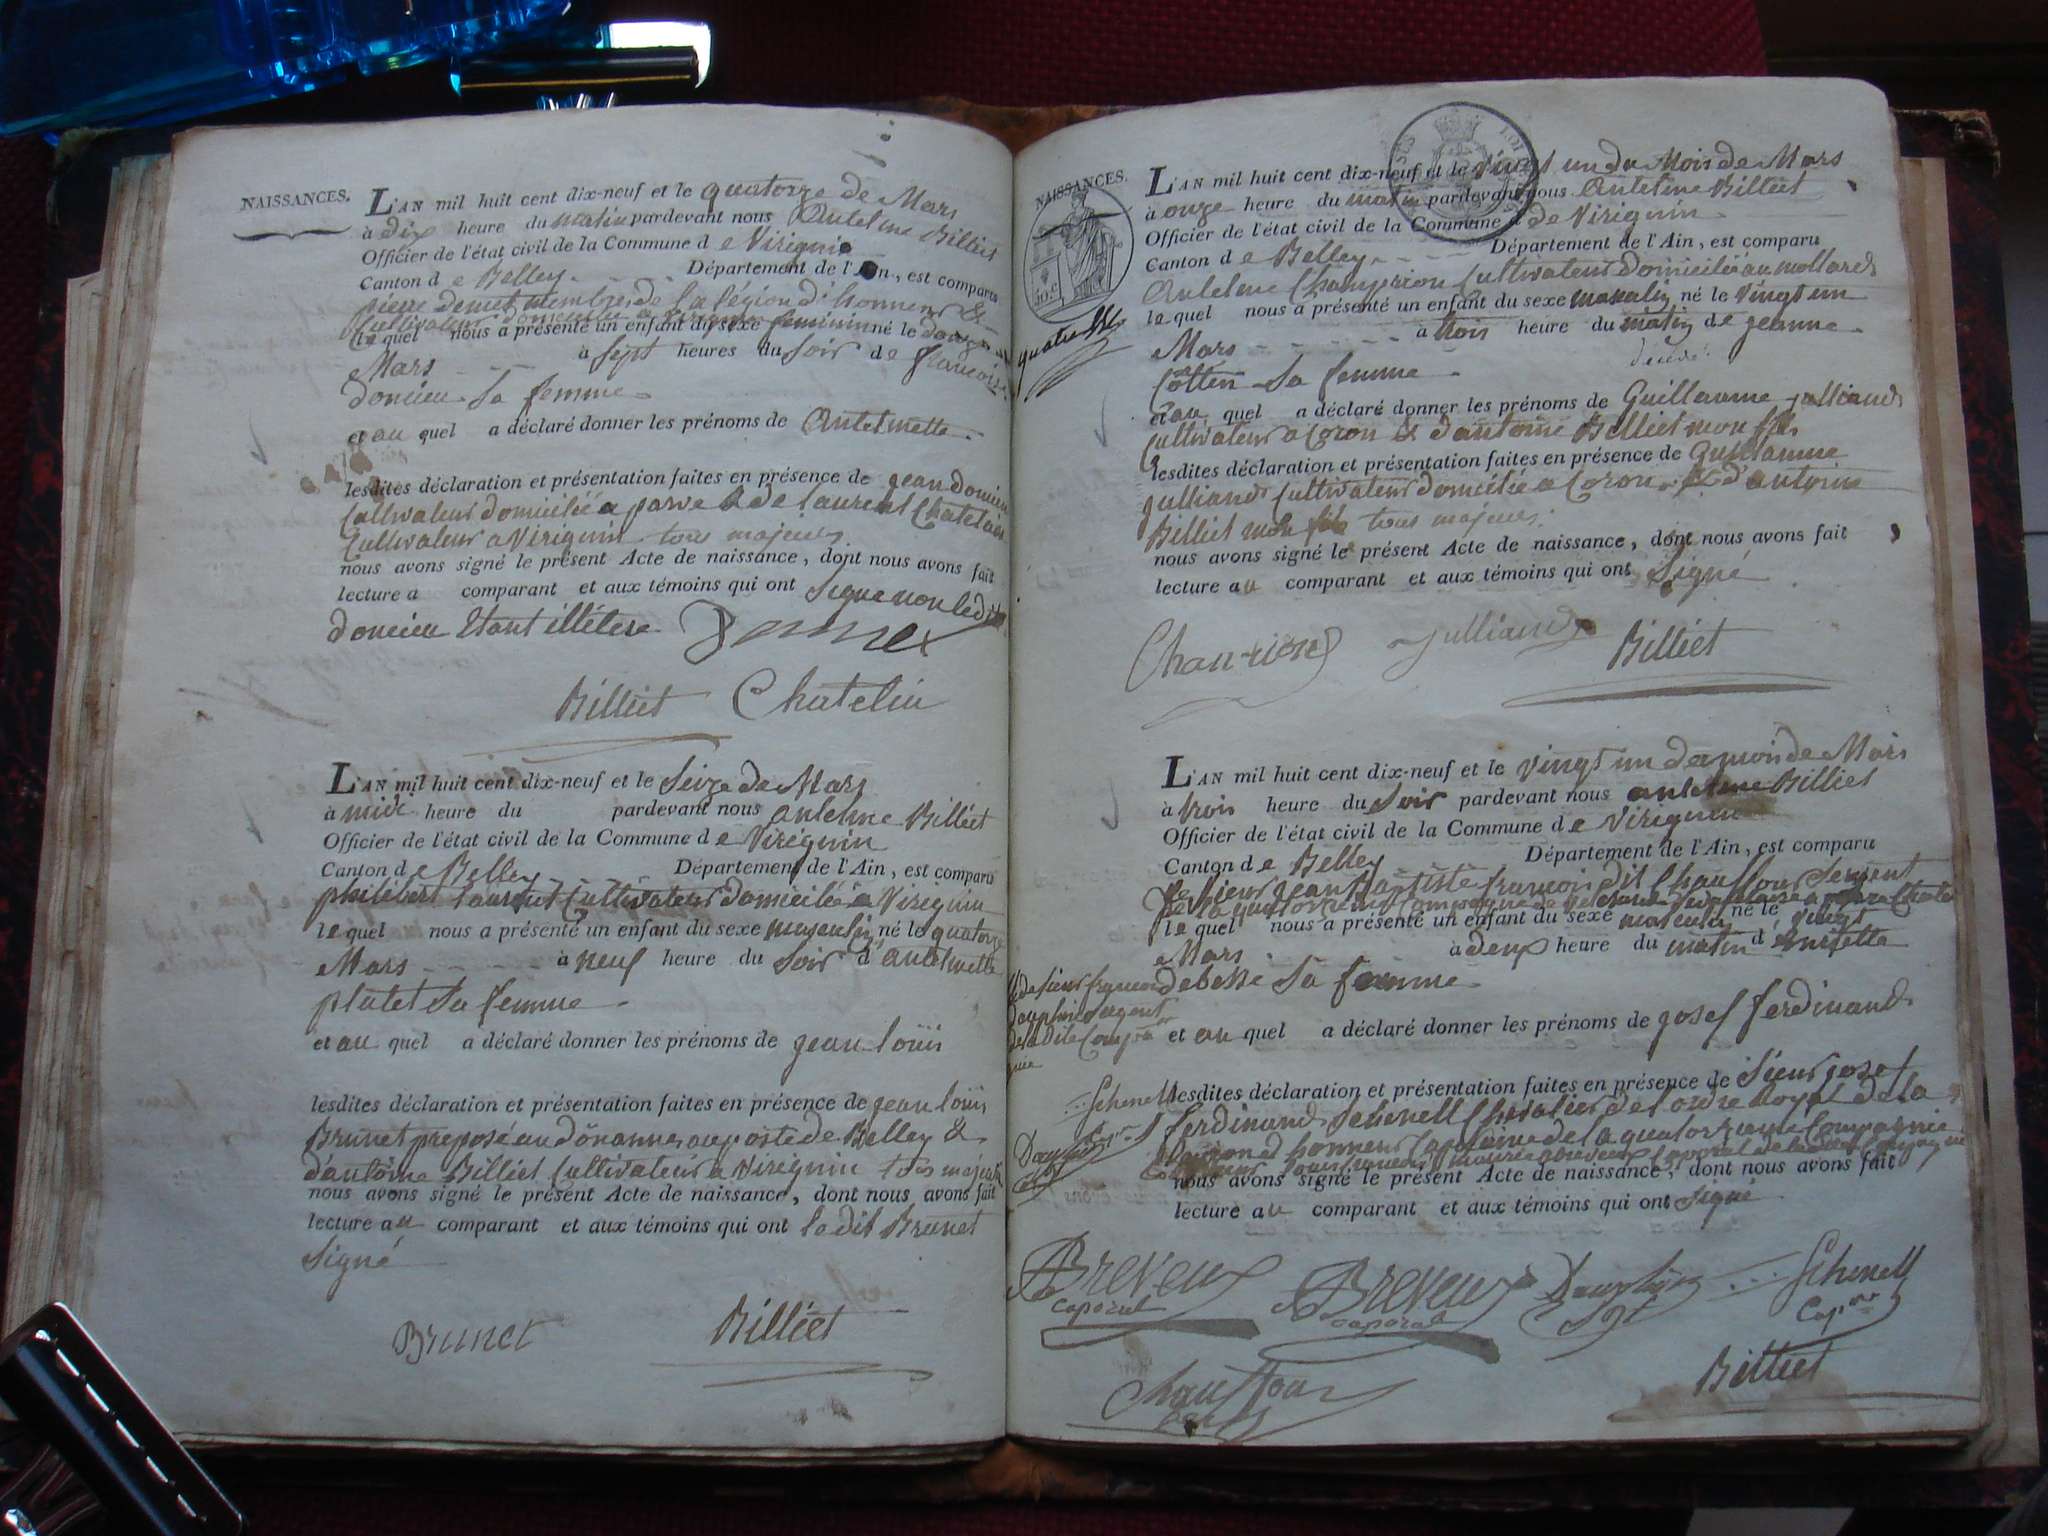 NAISSANCES.
L'AN mil huit cent dix-neuf et le quatorze de Mars
à dix heure du matin pardevant nous Antelme Billiet
Officier de l'état civil de la Commune de Virignin
Canton de Belley Département de l'Ain, est comparu
pierre demet membre de la légion d'honneur &
Cultivateur domicilié a Virignin
le quel nous a présenté un enfant du sexe feminin né le douze
Mars à sept heures du soir de francoise
doncieu sa femme
et au quel a déclaré donner les prénoms de Antelmette
lesdites déclaration et présentation faites en présence de jean doncieu
Cultivateur domicilié a parve & de laurent Chatelain
Cultivateur a Virignin tous majeurs
nous avons signé le présent Acte de naissance, dont nous avons fait
lecture a comparant et aux témoins qui ont signé non ledit
doncieu Etant illétere
Billiet Chatelin
L'AN mil huit cent dix-neuf et le seize de Mars
à midi heure du pardevant nous antelme Billiet
Officier de l'état civil de la Commune de Virignin
Canton de Belley Département de l'Ain, est comparu
philibert laurent Cultivateur domicilié a Virignin
le quel nous a présenté un enfant du sexe masculin né le quatorze
Mars à neuf heure du soir d'antelmette
platet sa femme
et au quel a déclaré donner les prénoms de jean louis
lesdites déclaration et présentation faites en présence de jean louis
Brunet preposé au doüannes au poste de Belley &
d'antoine Billiet Cultivateur a Virignin tous majeurs
nous avons signé le présent Acte de naissance, dont nous avons fait
lecture au comparant et aux témoins qui ont le dit Brunet
signé
Brunet Billiet
NAISSANCES.
L'AN mil huit cent dix-neuf et le vingt un du Mois de Mars
à onze heure du matin pardevant nous Antelme Billiet
Officier de l'état civil de la Commune de Virignin
Canton de Belley Département de l'Ain, est comparu
Antelme Cultivateur domicilié au mollard
le quel nous a présenté un enfant du sexe masculin né le vingt un
Mars à trois heure du matin de jeanne
Cottin sa femme
et au quel a déclaré donner les prénoms de Guillaume julliand
Cultivateur a Coron & d'antoine Billiet mon fils
lesdites déclaration et présentation faites en présence de Guillaume
julliand Cultivateur domicilié a Coron & d'antoine
Billiet mon fils tous majeurs
nous avons signé le présent Acte de naissance, dont nous avons fait
lecture au comparant et aux témoins qui ont signé
julliand Billiet
L'AN mil huit cent dix-neuf et le vingt un du mois de Mars
à trois heure du soir pardevant nous antelme Billiet
Officier de l'état civil de la Commune de Virignin
Canton de Belley Département de l'Ain, est comparu
le sieur jean Baptiste francois dit Chauffour sergent
de la quatorzieme Compagnie de
le quel nous a présenté un enfant du sexe masculin né le vingt
Mars à deux heure du matin d'
debesse sa femme
et au quel a déclaré donner les prénoms de josef ferdinand
& de sieur francois
dauphin sergent
de la Dite Compa
gnie
Schenell
Capne
Dauphin
sgt
lesdites déclaration et présentation faites en présence de sieur josef
ferdinand schenell Chevalier de l'ordre Royal de la
légion d'honneur Capitaine de la quatorzieme Compagnie
caporal de la dite Compagnie
nous avons signé le présent Acte de naissance, dont nous avons fait
lecture au comparant et aux témoins qui ont signé
Breveux Breveux Dauphin Schenell
caporal caporal Sgt Capne
Chauffour Billiet